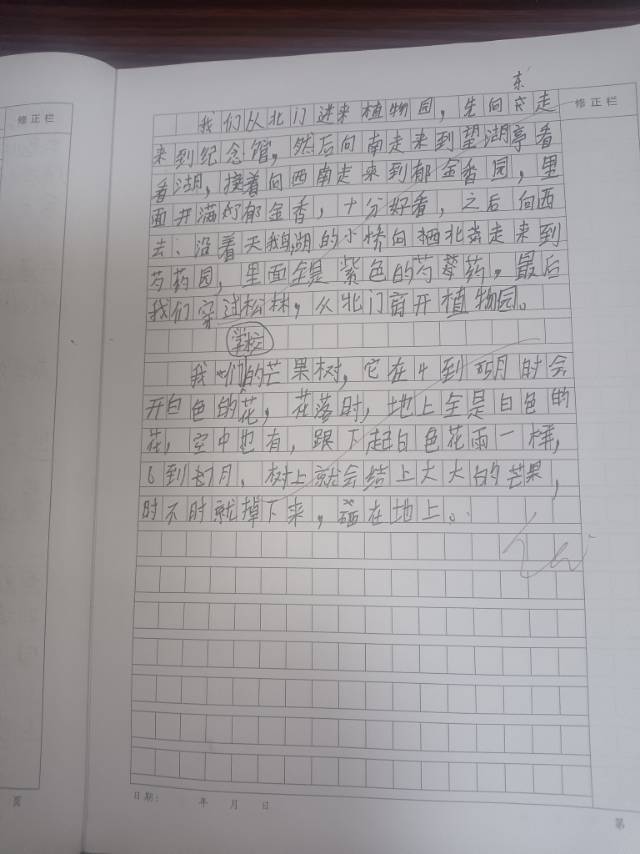 修正栏
修正栏
东
我们从北门进来植物园，先向走
来到纪念馆，然后向南走来到望湖亭看
看湖，接着向西南走来到郁金香园，里
面开满的郁金香，十分好看，之后向西
去、沿着天鹅湖的小桥向西北走来到
芍药园，里面全是紫色的芍药，最后
我们穿过松林，从北门离开植物园。
学校
我们的芒果树，它在4到5月时会
开白色的花，花落时，地上全是白色的
花，空中也有，跟下起白色花雨一样，
6到7月，树上就会结上大大的芒果，
时不时就掉下来，砸在地上。
日期： 年 月 日
页
第